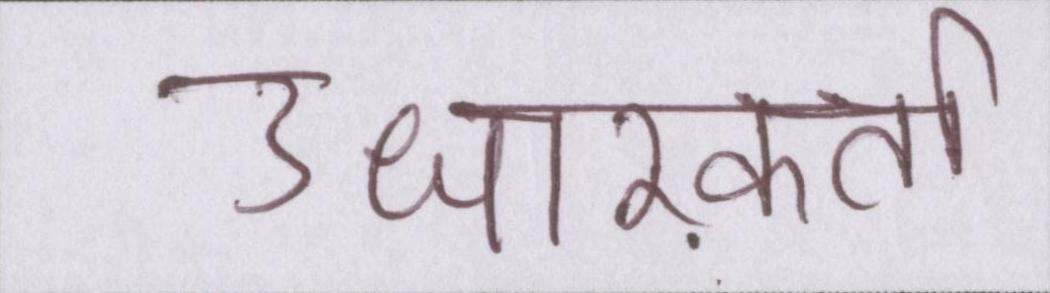 उधारक़र्ता